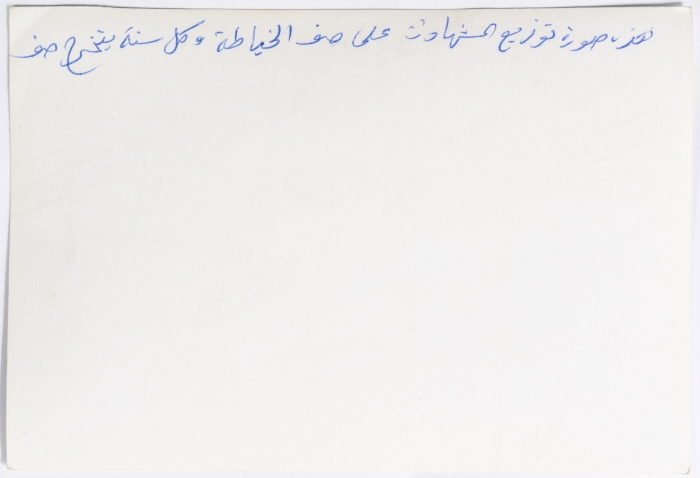 هذه صورة توزيع الشهادات على صف الخياطة وكل سنة يتخرج صف